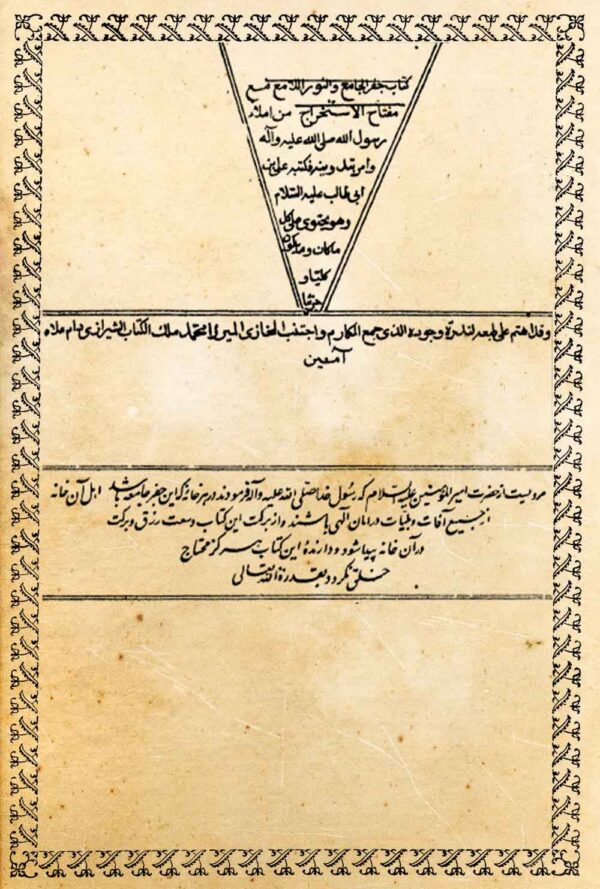 كتاب جفر الجامع والنور اللامع مع
مفتاح الاستخراج من املاء
رسول الله صلى الله عليه وآله
وامر به وسفر فكتبه على بن
ابى طالب عليه السلام
وهو يحتوى على كل
ماكان وما يكون
كليا و
جزئيا
وقد اهتم على طبعه لندرة وجوده الذى جمع المكارم واجتنب المخازى الميرزا محمد ملك الكتاب الشيرازى دام علاه
آمين
مرویست از حضرت امیرالمؤمنین علیه السلام که رسول خدا صلی الله علیه وآله فرمودند در هر خانه که این جفر جامعه باشد اهل آن خانه
از جمیع آفات و بلیات در امان آلهی باشند و از برکت این کتاب وسعت رزق و برکت
در آن خانه پیدا شود و دارندهٔ این کتاب هرگز محتاج
خلق نگردد بقدرة الله تعالی